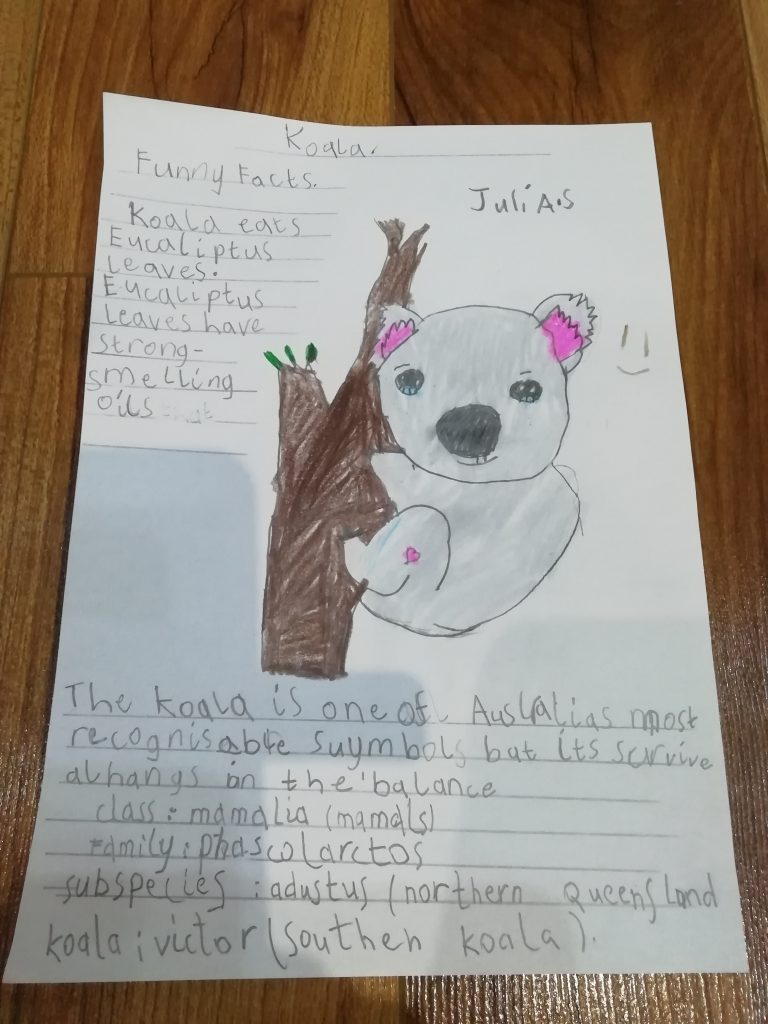 Koala.
Funny Facts.
JuliA.S
Koala eats
Eucaliptus
leaves.
Eucaliptus
leaves have
strong-
smelling
oils that
The koala is one of Australias most
recognisable suymbols but its survive
alhangs in the balance
class: mamalia (mamals)
Family: phascolarctos
subspecies: adustus (northern Queensland
koala; victor (southen koala).